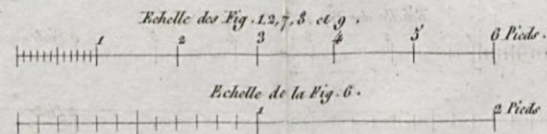 Echelle des Fig. 1.2,7,8 et 9.
1 2 3 4 5 6 Pieds.
Echelle de la Fig. 6.
1 2 Pieds